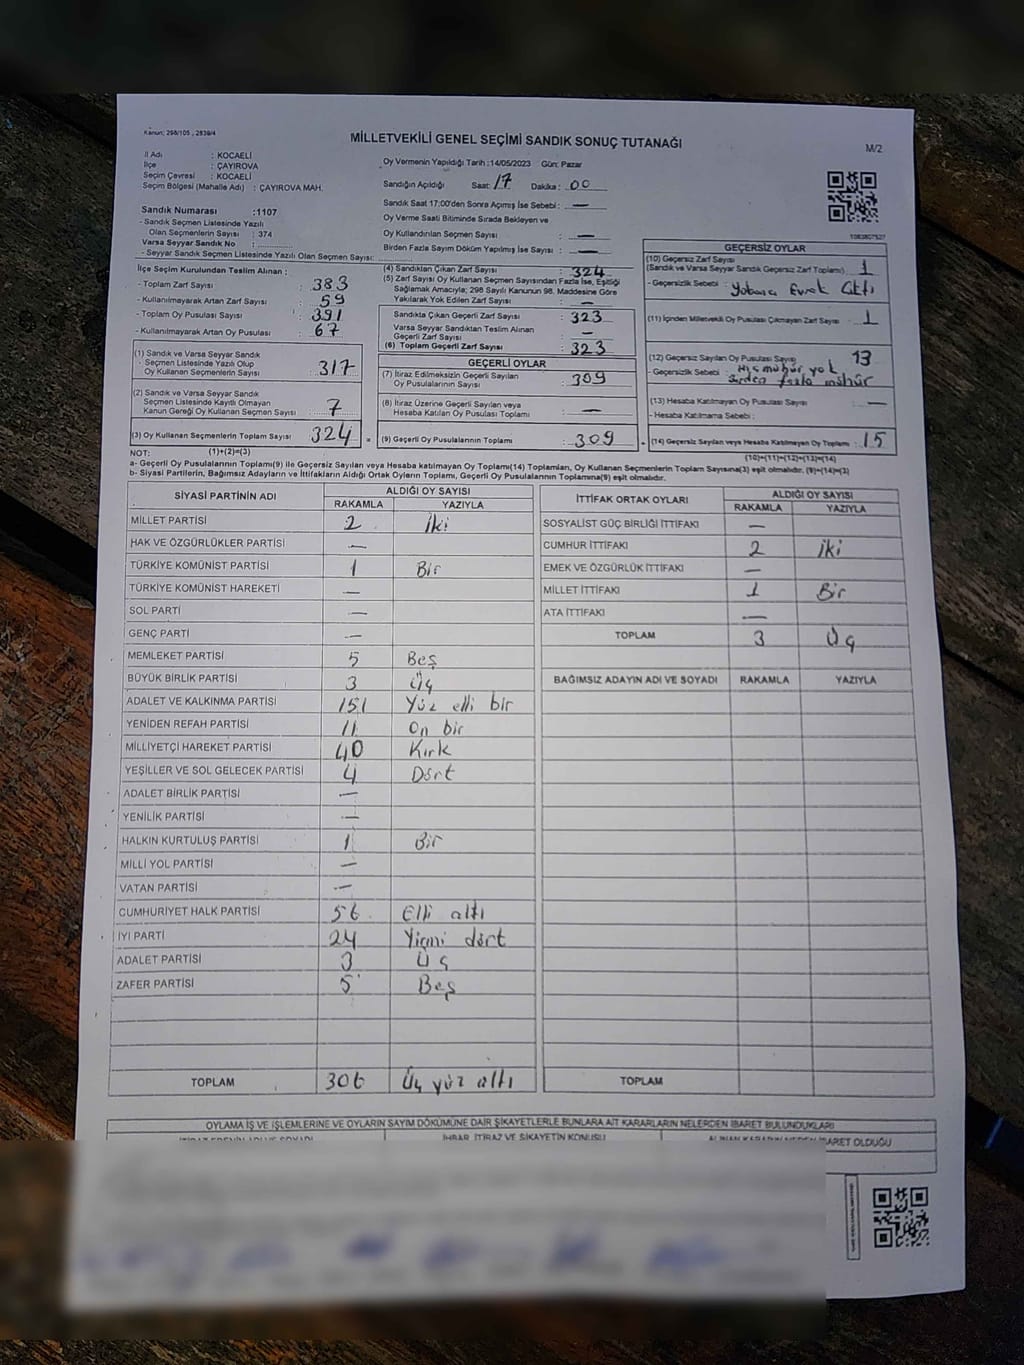 Kanun: 298/105 , 2839/4
MİLLETVEKİLİ GENEL SEÇİMİ SANDIK SONUÇ TUTANAĞI
M/2
İl Adı : KOCAELİ
İlçe : ÇAYIROVA
Seçim Çevresi : KOCAELİ
Seçim Bölgesi (Mahalle Adı) : ÇAYIROVA MAH.
Sandık Numarası :1107
- Sandık Seçmen Listesinde Yazılı
Olan Seçmenlerin Sayısı : 374
Varsa Seyyar Sandık No :
- Seyyar Sandık Seçmen Listesinde Yazılı Olan Seçmen Sayısı:
Oy Vermenin Yapıldığı Tarih :14/05/2023 Gün: Pazar
Sandığın Açıldığı Saat: 17 Dakika : 00
Sandık Saat 17:00'den Sonra Açılmış İse Sebebi : —
Oy Verme Saati Bitiminde Sırada Bekleyen ve
Oy Kullandırılan Seçmen Sayısı : —
Birden Fazla Sayım Döküm Yapılmış İse Sayısı : —
İlçe Seçim Kurulundan Teslim Alınan :
- Toplam Zarf Sayısı : 383
- Kullanılmayarak Artan Zarf Sayısı : 59
- Toplam Oy Pusulası Sayısı : 391
- Kullanılmayarak Artan Oy Pusulası : 67
(1) Sandık ve Varsa Seyyar Sandık
Seçmen Listesinde Yazılı Olup
Oy Kullanan Seçmenlerin Sayısı : 317
(2) Sandık ve Varsa Seyyar Sandık
Seçmen Listesinde Kayıtlı Olmayan
Kanun Gereği Oy Kullanan Seçmen Sayısı : 7
(3) Oy Kullanan Seçmenlerin Toplam Sayısı : 324
(4) Sandıktan Çıkan Zarf Sayısı : 324
(5) Zarf Sayısı Oy Kullanan Seçmen Sayısından Fazla İse, Eşitliği
Sağlamak Amacıyla; 298 Sayılı Kanunun 98. Maddesine Göre
Yakılarak Yok Edilen Zarf Sayısı : —
Sandıkta Çıkan Geçerli Zarf Sayısı : 323
Varsa Seyyar Sandıktan Teslim Alınan
Geçerli Zarf Sayısı : —
(6) Toplam Geçerli Zarf Sayısı : 323
GEÇERLİ OYLAR
(7) İtiraz Edilmeksizin Geçerli Sayılan
Oy Pusulalarının Sayısı : 309
(8) İtiraz Üzerine Geçerli Sayılan veya
Hesaba Katılan Oy Pusulası Toplamı : —
= (9) Geçerli Oy Pusulalarının Toplamı : 309
1083807527
GEÇERSİZ OYLAR
(10) Geçersiz Zarf Sayısı
(Sandık ve Varsa Seyyar Sandık Geçersiz Zarf Toplamı) : 1
- Geçersizlik Sebebi : Yabancı Evrak Çıktı
(11) İçinden Milletvekili Oy Pusulası Çıkmayan Zarf Sayısı : 1
(12) Geçersiz Sayılan Oy Pusulası Sayısı 13
- Geçersizlik Sebebi : Hiç mühür yok
Birden fazla mühür
(13) Hesaba Katılmayan Oy Pusulası Sayısı : —
- Hesaba Katılmama Sebebi :
(14) Geçersiz Sayılan veya Hesaba Katılmayan Oy Toplamı : 15
NOT: (1)+(2)=(3)
(10)+(11)+(12)+(13)=(14)
a- Geçerli Oy Pusulalarının Toplamı(9) ile Geçersiz Sayılan veya Hesaba katılmayan Oy Toplamı(14) Toplamları, Oy Kullanan Seçmenlerin Toplam Sayısına(3) eşit olmalıdır. (9)+(14)=(3)
b- Siyasi Partilerin, Bağımsız Adayların ve İttifakların Aldığı Ortak Oyların Toplamı, Geçerli Oy Pusulalarının Toplamına(9) eşit olmalıdır.
SİYASİ PARTİNİN ADI ALDIĞI OY SAYISI
RAKAMLA YAZIYLA
MİLLET PARTİSİ 2 İki
HAK VE ÖZGÜRLÜKLER PARTİSİ —
TÜRKİYE KOMÜNİST PARTİSİ 1 Bir
TÜRKİYE KOMÜNİST HAREKETİ —
SOL PARTİ —
GENÇ PARTİ —
MEMLEKET PARTİSİ 5 Beş
BÜYÜK BİRLİK PARTİSİ 3 Üç
ADALET VE KALKINMA PARTİSİ 151 Yüz elli bir
YENİDEN REFAH PARTİSİ 11 On bir
MİLLİYETÇİ HAREKET PARTİSİ 40 Kırk
YEŞİLLER VE SOL GELECEK PARTİSİ 4 Dört
ADALET BİRLİK PARTİSİ —
YENİLİK PARTİSİ —
HALKIN KURTULUŞ PARTİSİ 1 Bir
MİLLİ YOL PARTİSİ —
VATAN PARTİSİ —
CUMHURİYET HALK PARTİSİ 56 Elli altı
İYİ PARTİ 24 Yirmi dört
ADALET PARTİSİ 3 Üç
ZAFER PARTİSİ 5 Beş
TOPLAM 306 Üç yüz altı
İTTİFAK ORTAK OYLARI ALDIĞI OY SAYISI
RAKAMLA YAZIYLA
SOSYALİST GÜÇ BİRLİĞİ İTTİFAKI —
CUMHUR İTTİFAKI 2 iki
EMEK VE ÖZGÜRLÜK İTTİFAKI —
MİLLET İTTİFAKI 1 Bir
ATA İTTİFAKI —
TOPLAM 3 Üç
BAĞIMSIZ ADAYIN ADI VE SOYADI RAKAMLA YAZIYLA
TOPLAM
OYLAMA İŞ VE İŞLEMLERİNE VE OYLARIN SAYIM DÖKÜMÜNE DAİR ŞİKAYETLERLE BUNLARA AİT KARARLARIN NELERDEN İBARET BULUNDUKLARI
İHBAR, İTİRAZ VE ŞİKAYETİN KONUSU